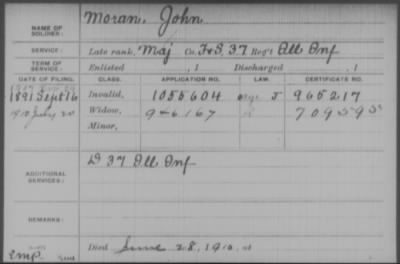 NAME OF SOLDIER: Moran, John
SERVICE: Late rank, Maj Co. F&S, 37 Reg't Ill Inf
TERM OF SERVICE: Enlisted , 1 Discharged , 1
DATE OF FILING. CLASS. APPLICATION NO. LAW. CERTIFICATE NO.
1891 Sept 16 Invalid, 1055604 J 965217
1910 July 20 Widow, 946167 709595
Minor,
ADDITIONAL SERVICES: D 37 Ill Inf
REMARKS:
Died June 28, 1910, at